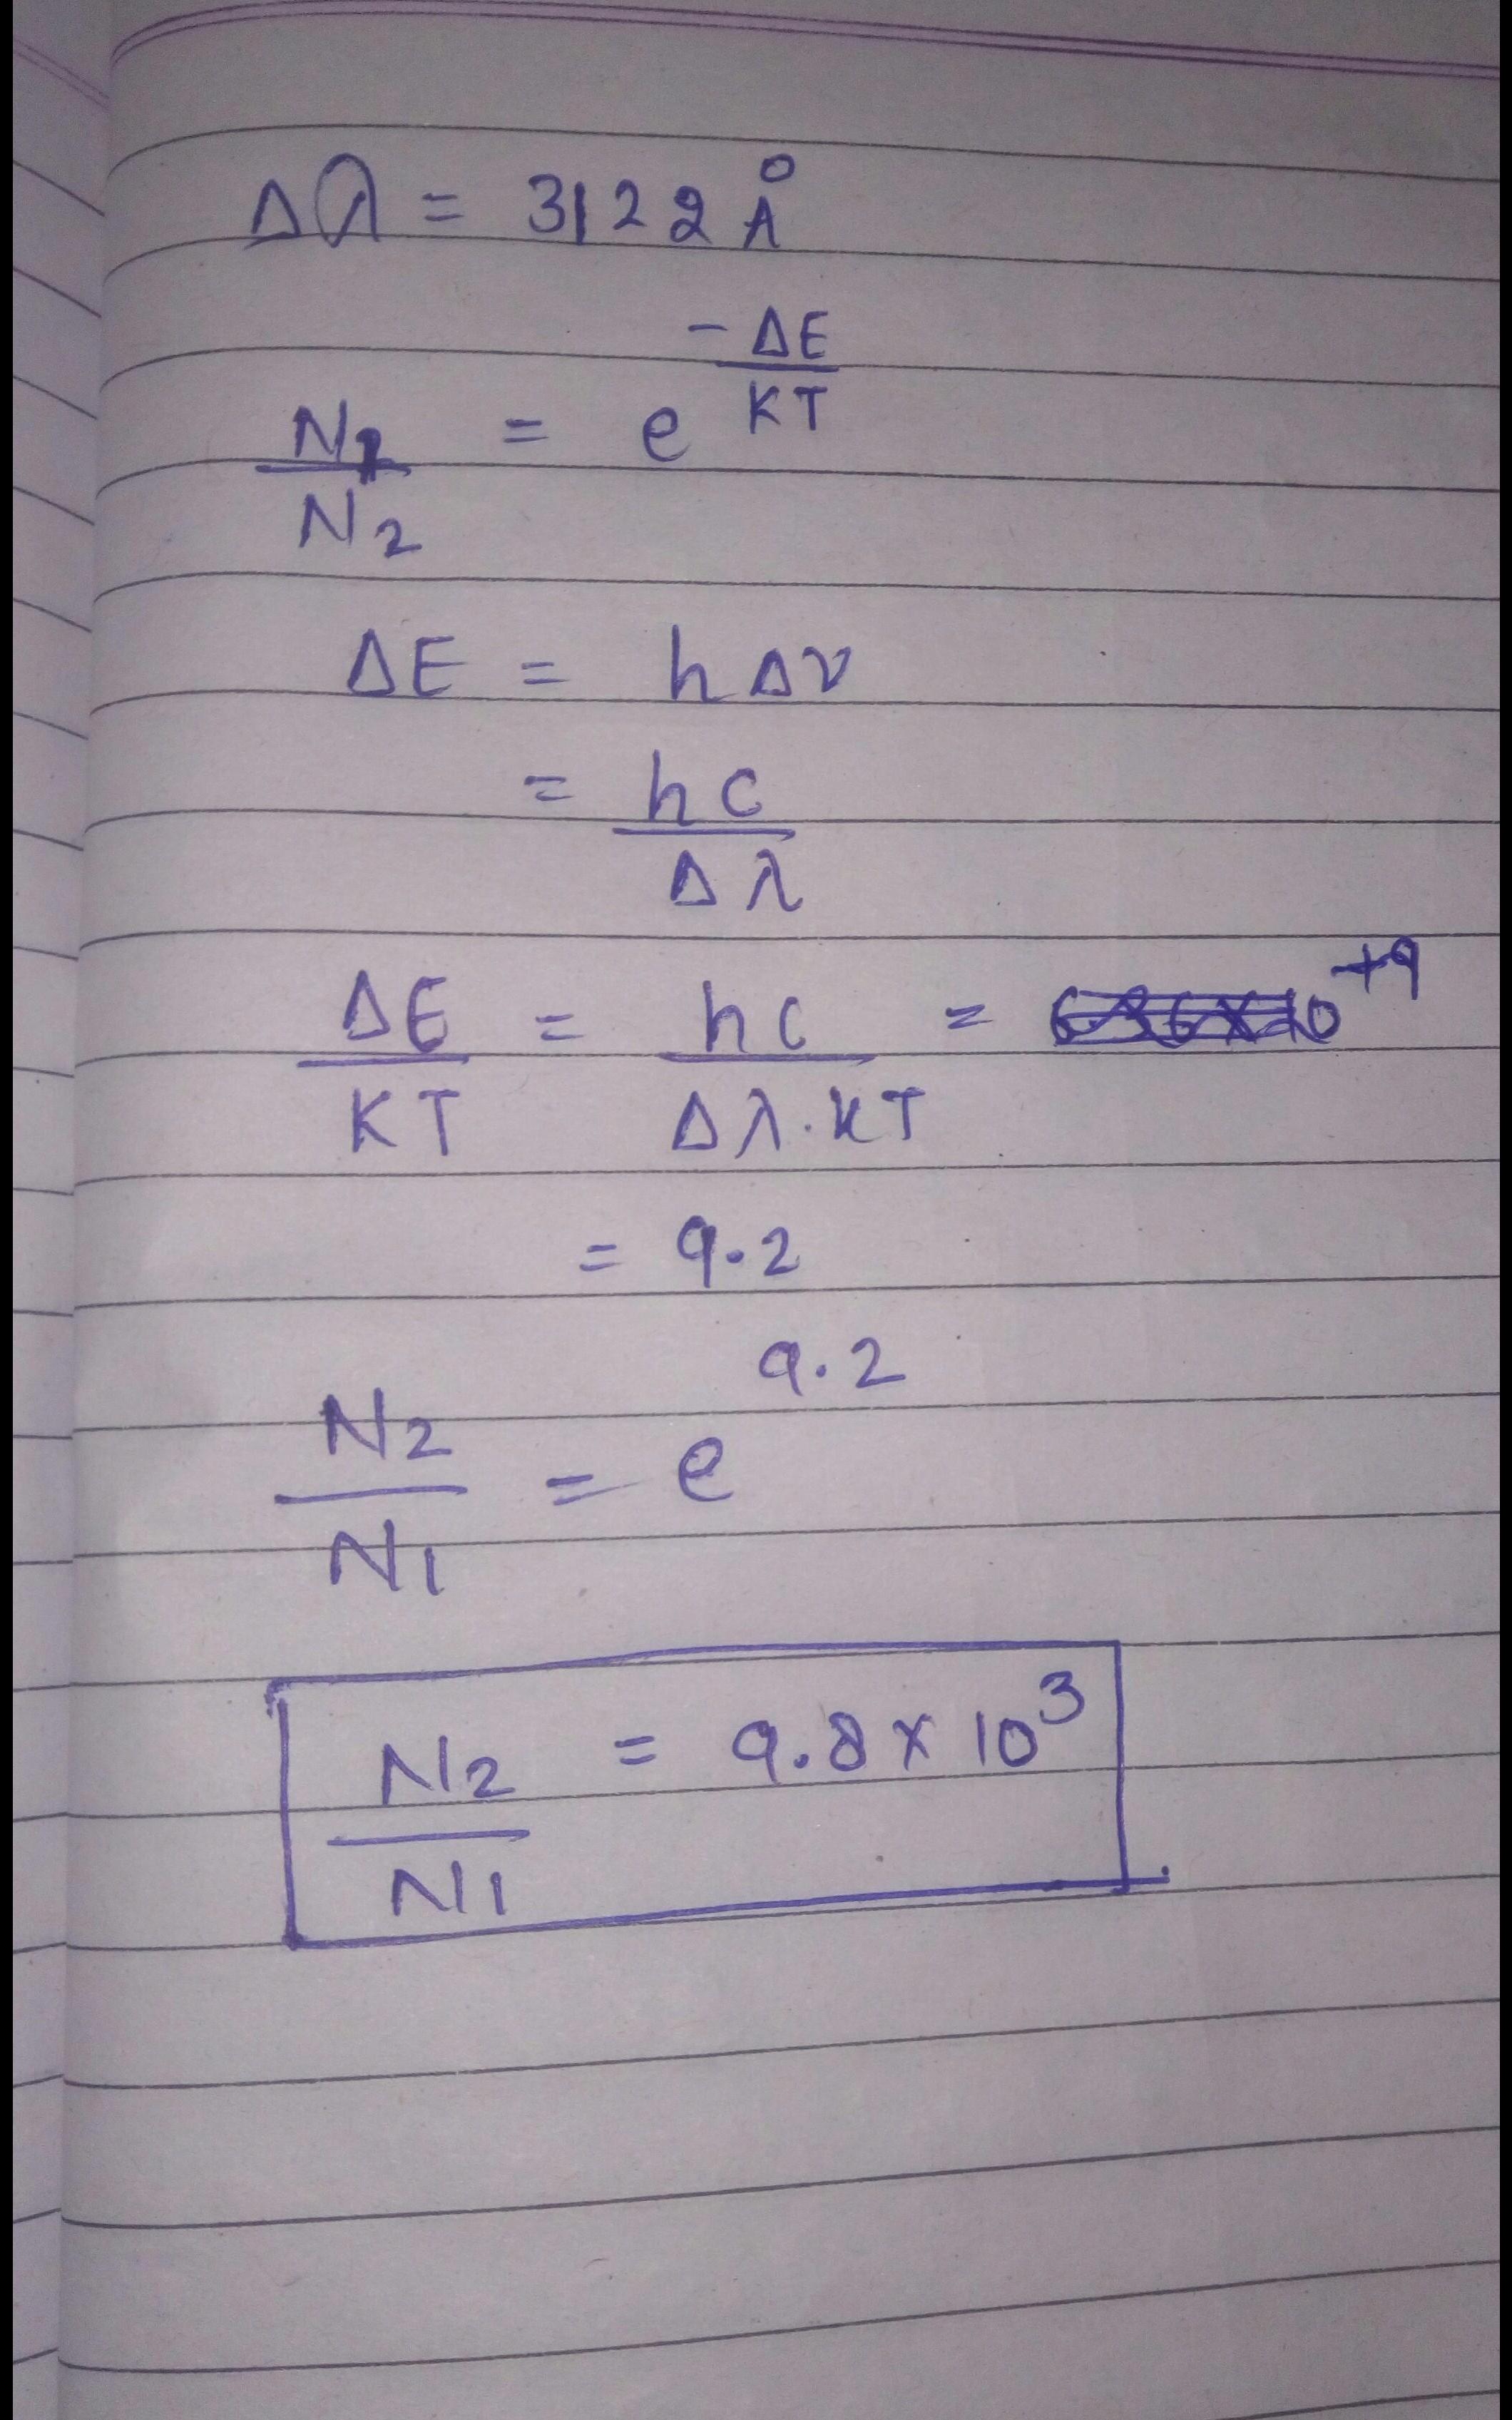 Δλ = 3122 Å
N1/N2 = e^(-ΔE/KT)
ΔE = hΔν
= hc/Δλ
ΔE/KT = hc/Δλ.KT = 10^+9
= 9.2
N2/N1 = e^9.2
N2/N1 = 9.8 x 10^3